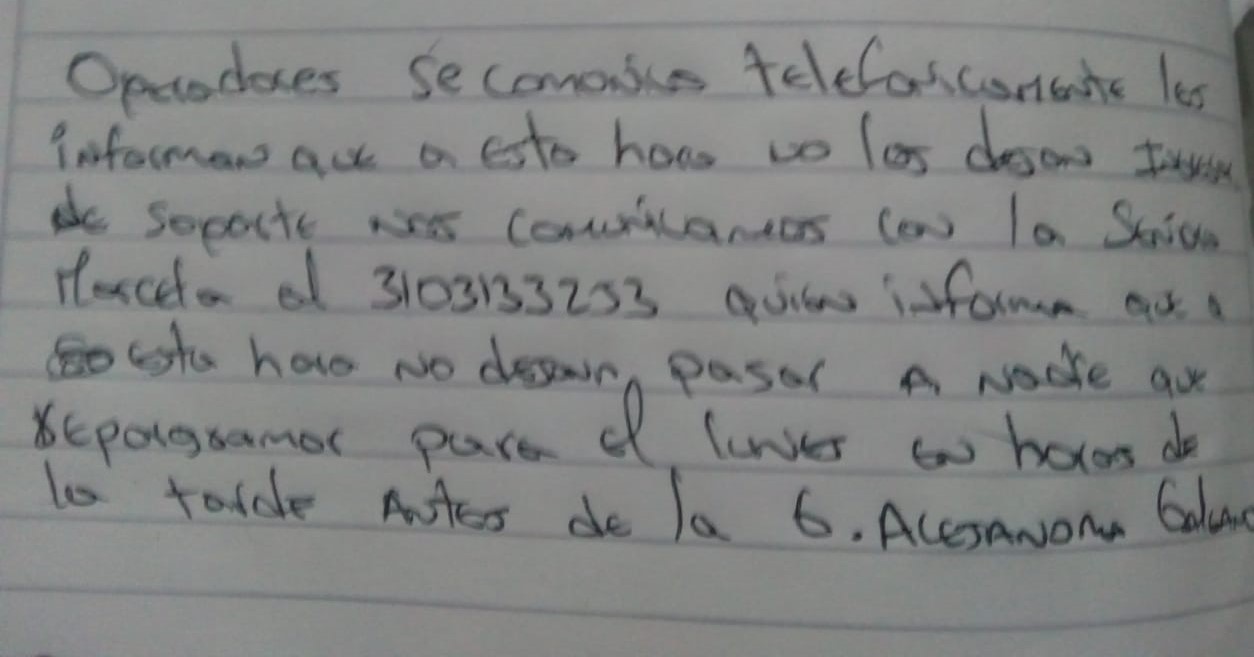 Operadores se comonica telefonicamente les
informan que a esta hora no los dejan
de soporte nos comunicamos con la Señora
Marcela al 3103133253 quien informa que a
esta hora no dejan pasar A Nadie que
repograamar para el lunes en horas de
la tarde Antes de la 6. ALEJANDRA Galeano